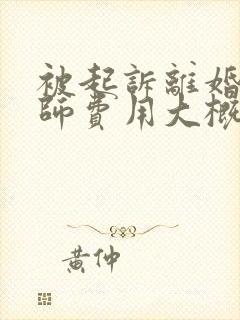 被起訴離婚
師費用大概
黃仲